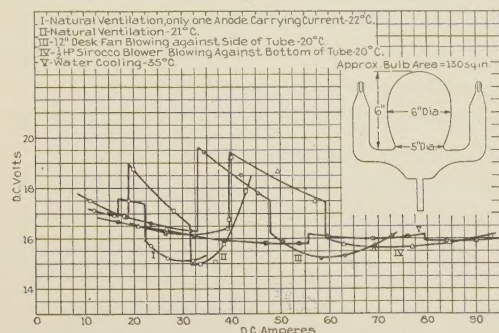 I-Natural Ventilation, only one Anode Carrying Current-22°C.
II-Natural Ventilation-21°C.
III-12" Desk Fan Blowing against Side of Tube-20°C.
IV-½HP Sirocco Blower Blowing Against Bottom of Tube-20°C.
V-Water Cooling-35°C.
Approx. Bulb Area=130sq.in
6"
6"Dia
5"Dia
D.C. Volts
20
18
16
14
I
II
III
IV
V
0
10
20
30
40
50
60
70
80
90
D.C. Amperes